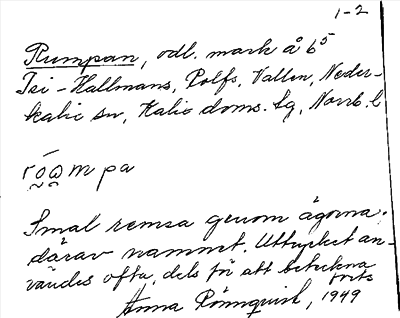 1-2
Rumpan, odl. mark å 6⁵
Isi-Hallmans, Rolfs, Vallen, Neder-
kalix sn, Kalix doms. lg, Norrb. l
róo̯mpa
Smal remsa genom ägorna,
därav namnet. Uttrycket an-
vändes ofta, dels för att beteckna
Anna Rönnquist, 1949